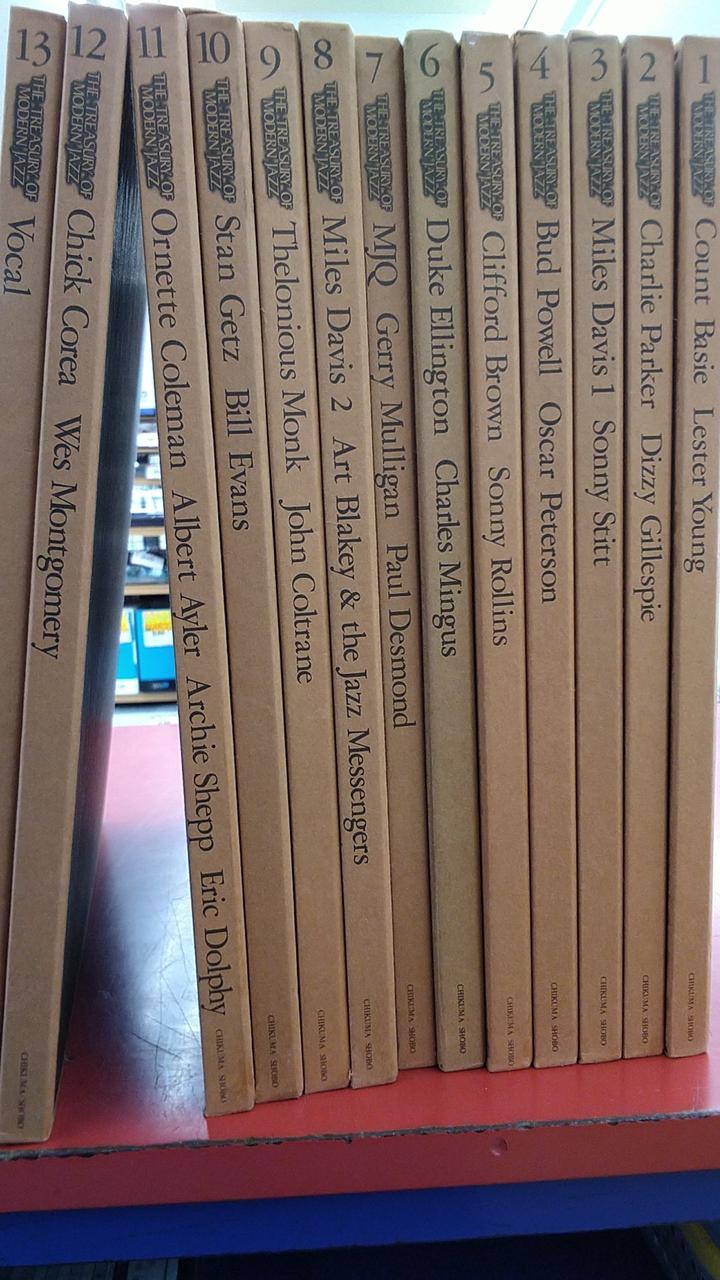 13
THE TREASURY OF
MODERN JAZZ
Vocal
12
THE TREASURY OF
MODERN JAZZ
Chick Corea Wes Montgomery
CHIKUMA SHOBO
11
THE TREASURY OF
MODERN JAZZ
Ornette Coleman Albert Ayler Archie Shepp Eric Dolphy
CHIKUMA SHOBO
10
THE TREASURY OF
MODERN JAZZ
Stan Getz Bill Evans
CHIKUMA SHOBO
9
THE TREASURY OF
MODERN JAZZ
Thelonious Monk John Coltrane
CHIKUMA SHOBO
8
THE TREASURY OF
MODERN JAZZ
Miles Davis 2 Art Blakey & the Jazz Messengers
CHIKUMA SHOBO
7
THE TREASURY OF
MODERN JAZZ
MJQ Gerry Mulligan Paul Desmond
CHIKUMA SHOBO
6
THE TREASURY OF
MODERN JAZZ
Duke Ellington Charles Mingus
CHIKUMA SHOBO
5
THE TREASURY OF
MODERN JAZZ
Clifford Brown Sonny Rollins
CHIKUMA SHOBO
4
THE TREASURY OF
MODERN JAZZ
Bud Powell Oscar Peterson
CHIKUMA SHOBO
3
THE TREASURY OF
MODERN JAZZ
Miles Davis 1 Sonny Stitt
CHIKUMA SHOBO
2
THE TREASURY OF
MODERN JAZZ
Charlie Parker Dizzy Gillespie
CHIKUMA SHOBO
1
THE TREASURY OF
MODERN JAZZ
Count Basie Lester Young
CHIKUMA SHOBO